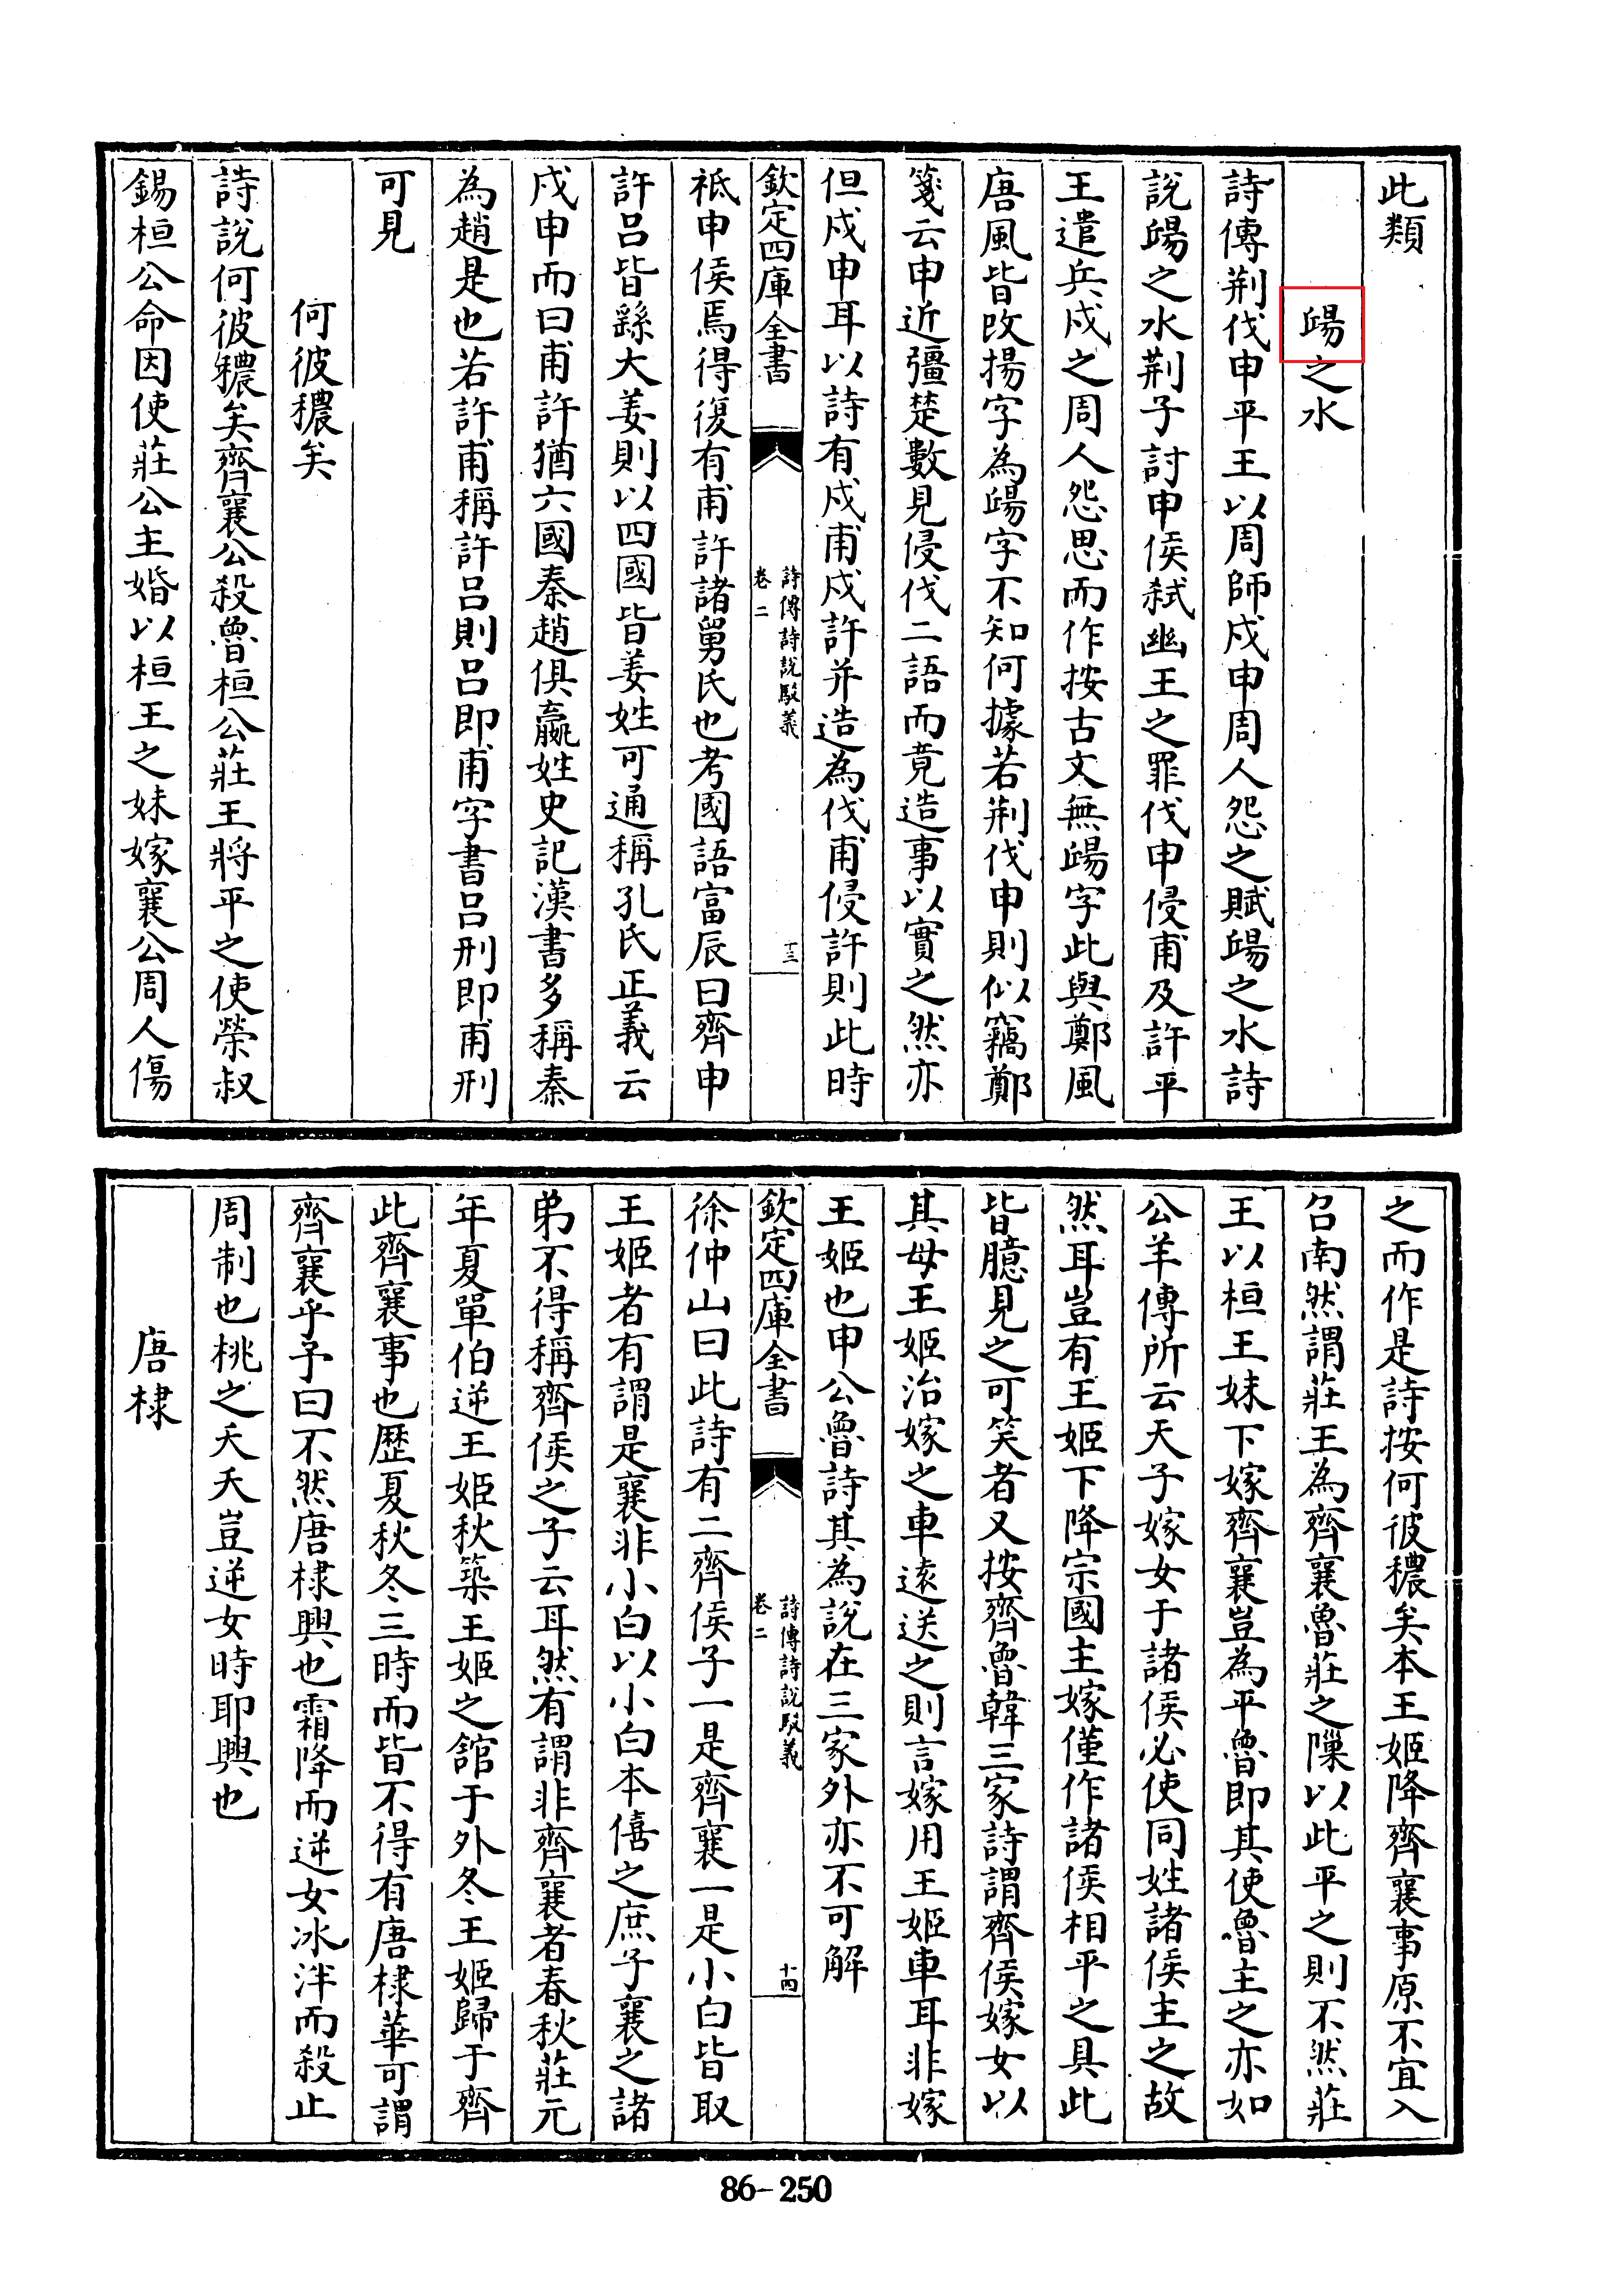 此類
之水
詩傳荆伐申平王以周師戍申周人怨之賦之水詩
說之水荆子討申侯弑幽王之罪伐申侵甫及許平
王遣兵戍之周人怨思而作按古文無字此與鄭風
唐風皆改揚字為字不知何據若荆伐申則似竊鄭
箋云申近彊楚數見侵伐二語而竟造事以實之然亦
但戍申耳以詩有戍甫戍許并造為伐甫侵許則此時
欽定四庫全書
詩傳詩說駁義
卷二
十三
祗申侯焉得復有甫許諸舅氏也考國語富辰曰齊申
許吕皆繇大姜則以四國皆姜姓可通稱孔氏正義云
戍申而曰甫許猶六國秦趙俱嬴姓史記漢書多稱秦
為趙是也若許甫稱許吕則吕即甫字書吕刑即甫刑
可見
何彼穠矣
詩說何彼穠矣齊襄公殺魯桓公莊王將平之使榮叔
錫桓公命因使莊公主婚以桓王之妹嫁襄公周人傷
之而作是詩按何彼穠矣本王姬降齊襄事原不宜入
召南然謂莊王為齊襄魯莊之隟以此平之則不然莊
王以桓王妹下嫁齊襄豈為平魯即其使魯主之亦如
公羊傳所云天子嫁女于諸侯必使同姓諸侯主之故
然耳豈有王姬下降宗國主嫁僅作諸侯相平之具此
皆臆見之可笑者又按齊魯韓三家詩謂齊侯嫁女以
其母王姬治嫁之車遠送之則言嫁用王姬車耳非嫁
王姬也申公魯詩其為說在三家外亦不可解
欽定四庫全書
詩傳詩說駁義
卷二
十四
徐仲山曰此詩有二齊侯子一是齊襄一是小白皆取
王姬者有謂是襄非小白以小白本僖之庶子襄之諸
弟不得稱齊侯之子云耳然有謂非齊襄者春秋莊元
年夏單伯逆王姬秋築王姬之館于外冬王姬歸于齊
此齊襄事也歷夏秋冬三時而皆不得有唐棣華可謂
齊襄乎予曰不然唐棣興也霜降而逆女冰泮而殺止
周制也桃之夭夭豈逆女時耶興也
唐棣
86-250